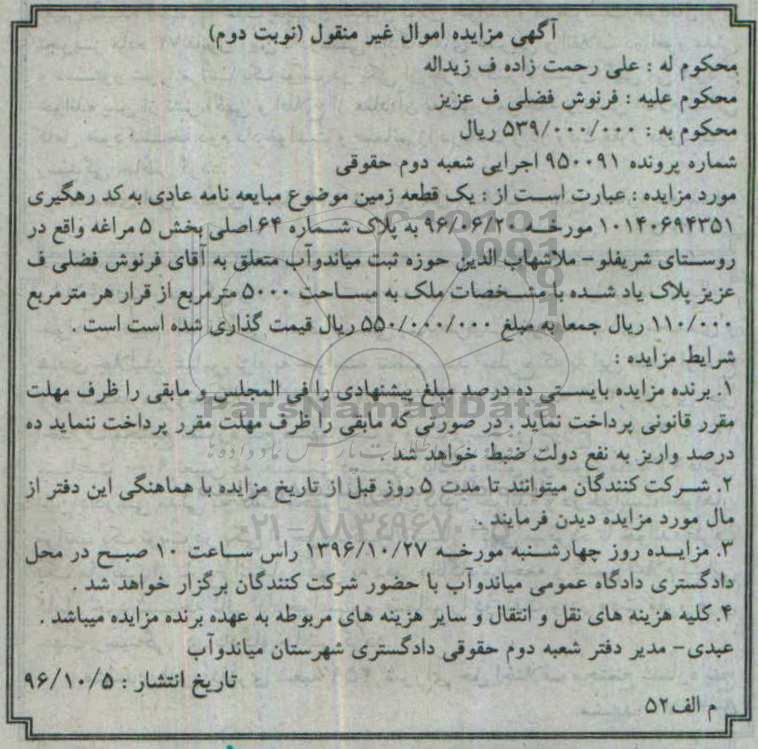 آگهی مزایده اموال غیر منقول (نوبت دوم)
محکوم له : علی رحمت زاده ف زیداله
محکوم علیه : فرنوش فضلی ف عزیز
محکوم به : ۵۳۹/۰۰۰/۰۰۰ ریال
شماره پرونده ۹۵۰۰۹۱ اجرایی شعبه دوم حقوقی
مورد مزایده : عبارت است از : یک قطعه زمین موضوع مبایعه نامه عادی به کد رهگیری
۱۰۱۴۰۶۹۴۳۵۱ مورخه ۹۶/۰۶/۲۰ به پلاک شماره ۶۴ اصلی بخش ۵ مراغه واقع در
روستای شریفلو- ملاشهاب الدین حوزه ثبت میاندوآب متعلق به آقای فرنوش فضلی ف
عزیز پلاک یاد شده با مشخصات ملک به مساحت ۵۰۰۰ مترمربع از قرار هر مترمربع
۱۱۰/۰۰۰ ریال جمعا به مبلغ ۵۵۰/۰۰۰/۰۰۰ ریال قیمت گذاری شده است است .
شرایط مزایده :
۱. برنده مزایده بایستی ده درصد مبلغ پیشنهادی را فی المجلس و مابقی را ظرف مهلت
مقرر قانونی پرداخت نماید . در صورتی که مابقی را ظرف مهلت مقرر پرداخت ننماید ده
درصد واریز به نفع دولت ضبط خواهد شد .
۲. شرکت کنندگان میتوانند تا مدت ۵ روز قبل از تاریخ مزایده با هماهنگی این دفتر از
مال مورد مزایده دیدن فرمایند .
۳. مزایده روز چهارشنبه مورخه ۱۳۹۶/۱۰/۲۷ راس ساعت ۱۰ صبح در محل
دادگستری دادگاه عمومی میاندوآب با حضور شرکت کنندگان برگزار خواهد شد .
۴. کلیه هزینه های نقل و انتقال و سایر هزینه های مربوطه به عهده برنده مزایده میباشد .
عبدی- مدیر دفتر شعبه دوم حقوقی دادگستری شهرستان میاندوآب
تاریخ انتشار : ۹۶/۱۰/۵
م الف۵۲
ParsNamadData
۰۲۱-۸۸۳۴۹۶۷۰